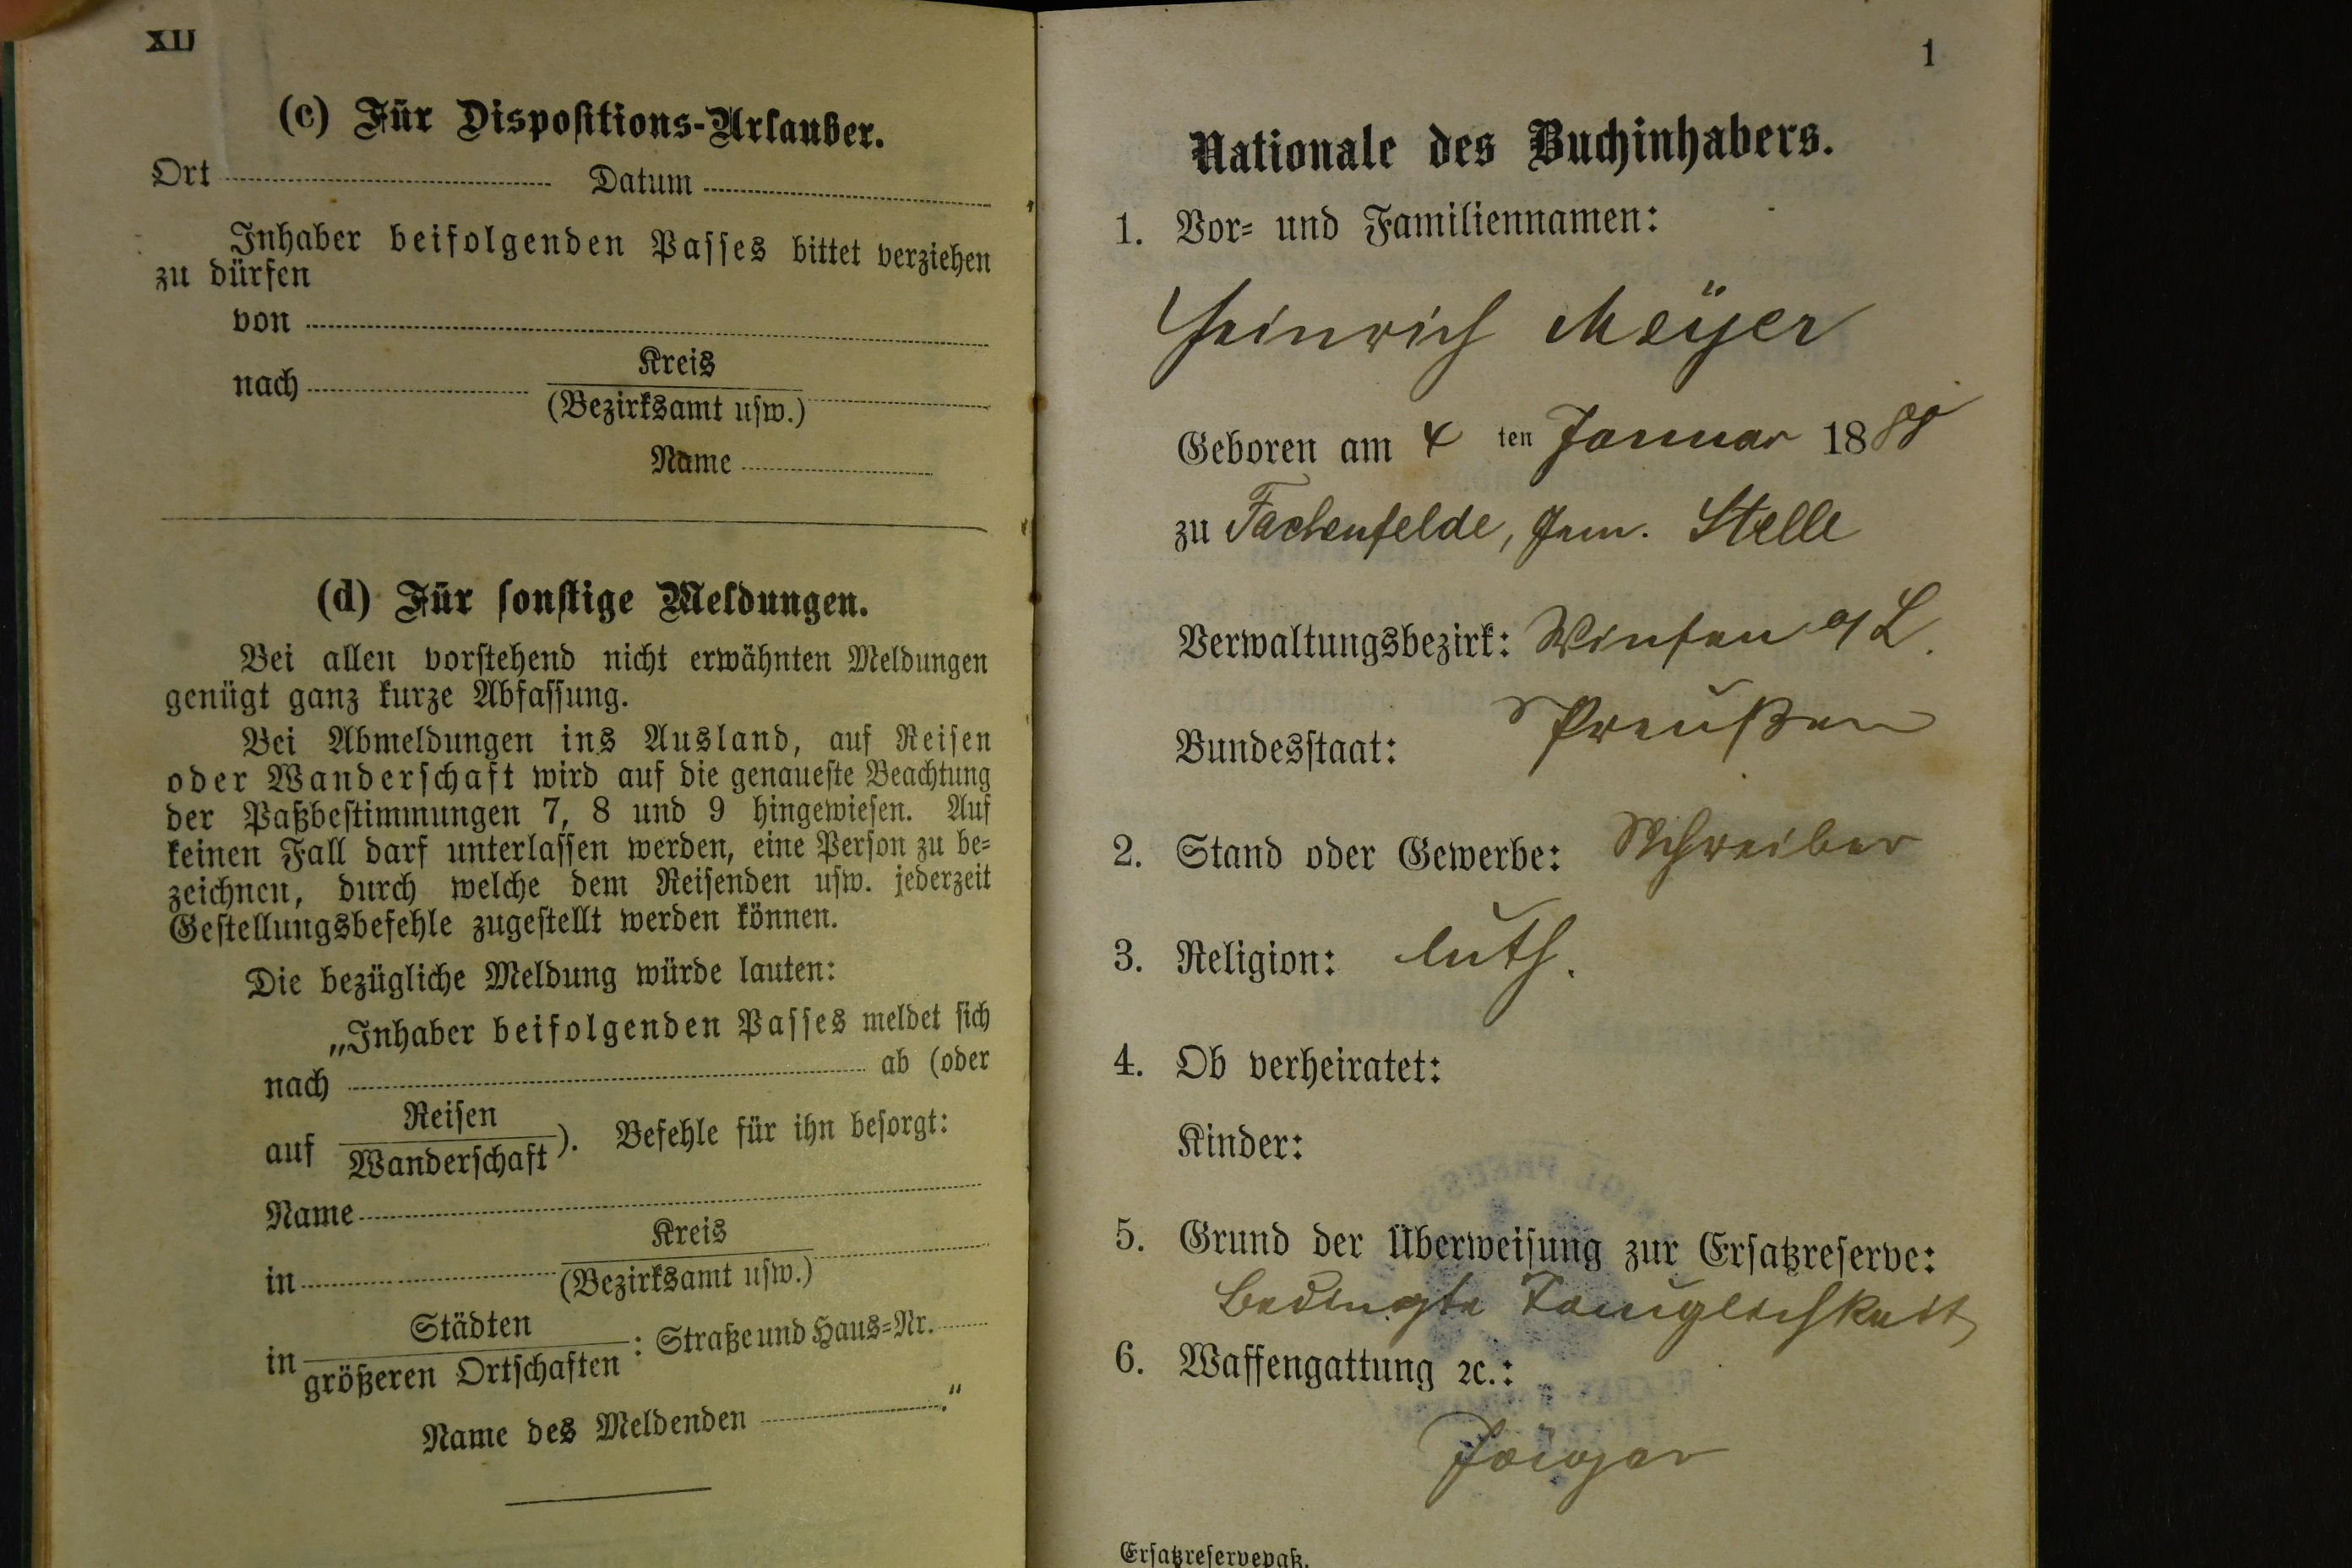 XII
(c) Für Dispositions-Urlauber.
Ort Datum
Inhaber beifolgenden Passes bittet verziehen
zu dürfen
von
nach Kreis
(Bezirksamt usw.)
Name
(d) Für sonstige Meldungen.
Bei allen vorstehend nicht erwähnten Meldungen
genügt ganz kurze Abfassung.
Bei Abmeldungen ins Ausland, auf Reisen
oder Wanderschaft wird auf die genaueste Beachtung
der Paßbestimmungen 7, 8 und 9 hingewiesen. Auf
keinen Fall darf unterlassen werden, eine Person zu be-
zeichnen, durch welche dem Reisenden usw. jederzeit
Gestellungsbefehle zugestellt werden können.
Die bezügliche Meldung würde lauten:
„Inhaber beifolgenden Passes meldet sich
nach ab (oder
auf Reisen
Wanderschaft). Befehle für ihn besorgt:
Name
in Kreis
(Bezirksamt usw.)
in Städten
größeren Ortschaften : Straße und Haus-Nr.
Name des Meldenden ."
1
Nationale des Buchinhabers.
1. Vor- und Familiennamen:
Heinrich Meÿer
Geboren am 4 ten Januar 1888
zu Fachenfelde, Gem. Stelle
Verwaltungsbezirk: Winsen a/L.
Bundesstaat: Preußen
2. Stand oder Gewerbe: Schreiber
3. Religion: luth.
4. Ob verheiratet:
Kinder:
5. Grund der Überweisung zur Ersatzreserve:
Bedingte Tauglichkeit
6. Waffengattung ꝛc.:
Jäger
Ersatzreservepaß.